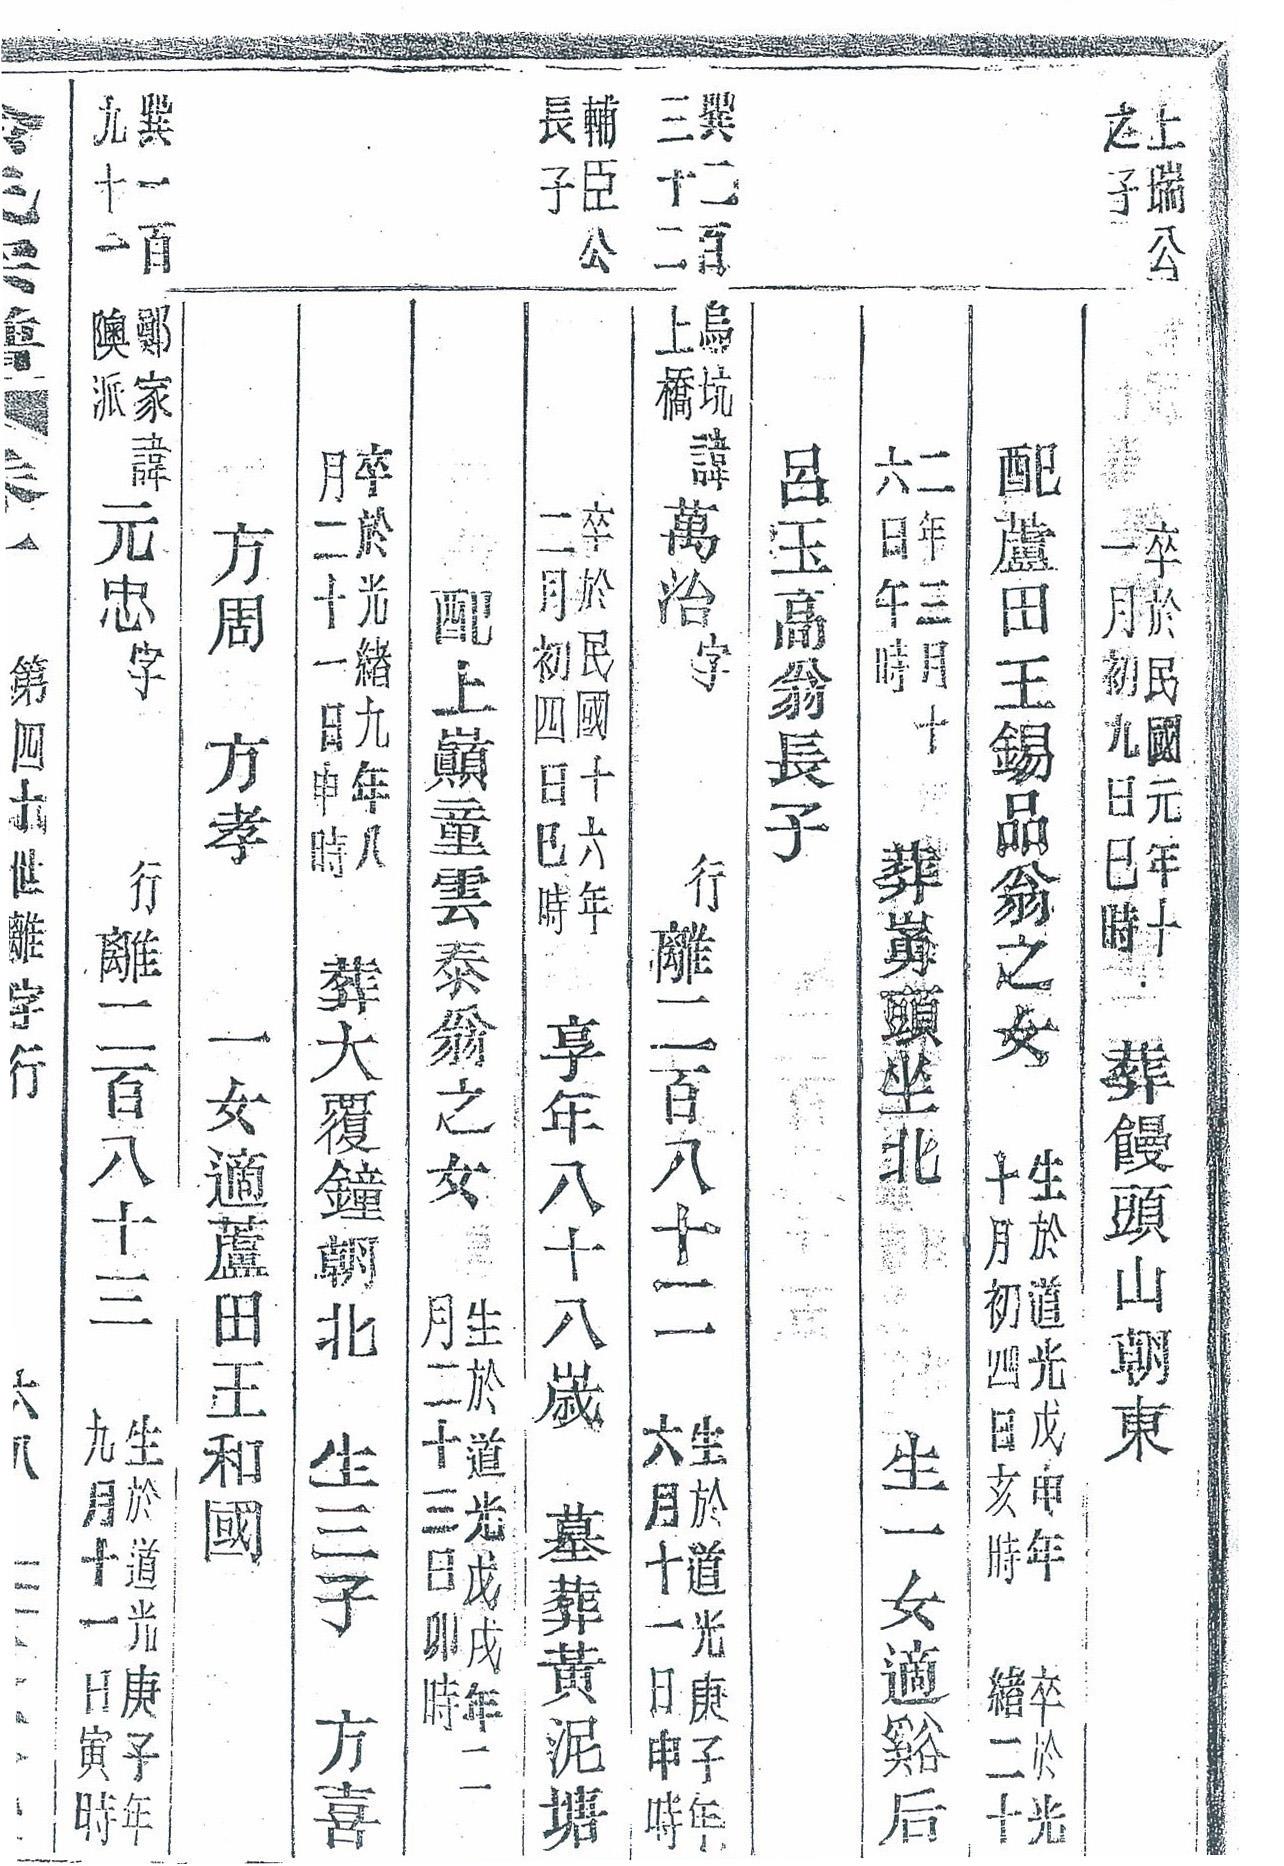 上瑞公
之子
卒於民國元年十
一月初九日巳時
葬饅頭山朝東
配蘆田王錫品翁之女
生於道光戊申年
十月初四日亥時
卒於光
緒二十
二年三月十
六日午時
葬嶺頭坐北
生一女適谿后
呂玉高翁長子
巽二百
三十二
烏坑
上橋
諱萬治字
行離二百八十二
生於道光庚子年
六月十一日申時
輔臣公
長子
卒於民國十六年
二月初四日巳時
享年八十八歲
墓葬黃泥塘
配上巔童雲泰翁之女
生於道光戊戌年二
月二十三日卯時
卒於光緒九年八
月二十一日申時
葬大覆鐘朝北
生三子
方喜
方周
方孝
一女適蘆田王和國
巽一百
九十一
鄭家
隩派
諱元忠字
行離二百八十三
生於道光庚子年
九月十一日寅時
卷一
世離字行
六八